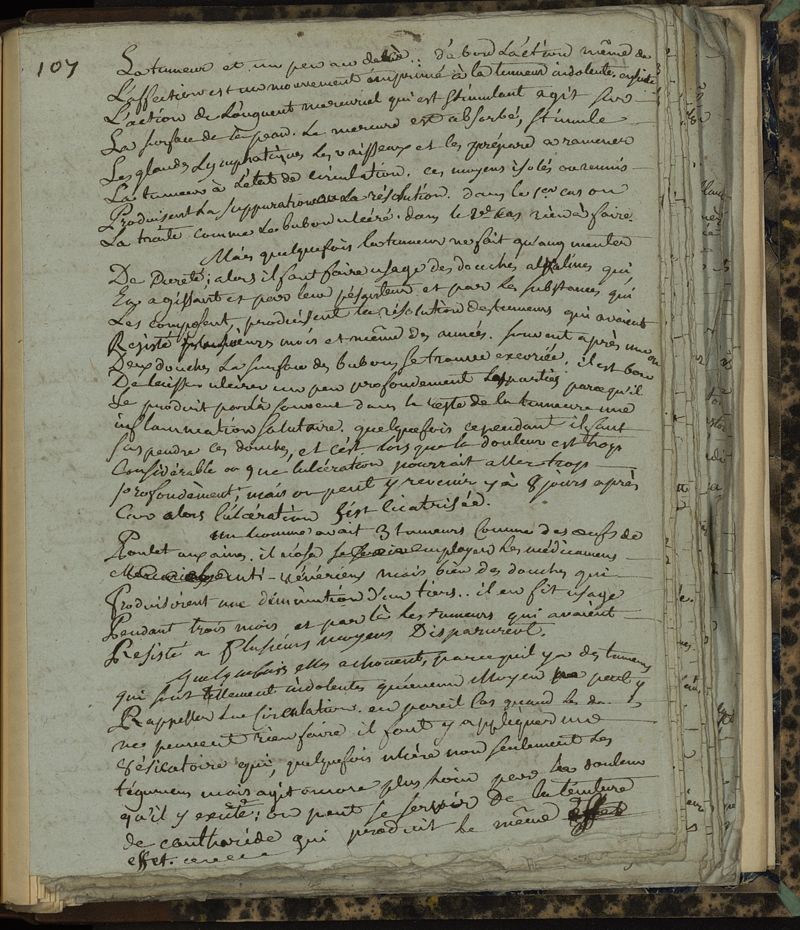 107
La tumeur et un peu au delà.. d'abord l'action même de
L'affection est un mouvement imprimé à la tumeur indolente, ensuite
L'action de l'onguent mercuriel qui est stimulant agit sur
La surface de la peau. Le mercure est absorbé, stimule
Les glandes Lymphatiques les vaisseaux et les prépare a ramener
La tumeur à l'état de circulation. ces moyens isolés ou reunis
Produisent la suppuration ou la résolution. dans le 1er cas on
La traite comme le bubon ulcéré. dans le 2d cas rien à faire.
Mais quelquefois la tumeur ne fait qu'augmenter
De Dureté; alors il faut faire usage des douches alkalines qui,
En agissant et par leur pésanteur et par les substances qui
Les composent, produisent la résolution des tumeurs qui avaient
Résisté plusieurs mois et même des années. souvent après une ou
Deux douches la surface des bubons se trouve excoriée, il est bon
De laisser ulcérer un peu profondement les parties parcequ'il
Se produit par là souvent dans le reste de la tumeur une
inflammation salutaire. quelquefois cependant il faut
suspendre ces douches, et c'est lors que la douleur est trop
Considérable ou que l'ulcération pourrait aller trop
profondément; mais on peut y revenir 7 à 8 jours après
Car alors l'ulcération s'est cicatrisée.
un homme avait 3 tumeurs Comme des oeufs de
Poulet aux aines. il n'osa employer les médicamens
anti-vénériens mais bien des douches qui
Produisirent une diminution d'un tiers.. il en fit usage
Pendant trois mois et par là les tumeurs qui avaient
Résisté a Plusieurs moyens Disparurent.
Quelquefois elles echouent, parcequ'il y a des tumeurs
qui sont tellement indolentes qu'aucun Moyen ne peut y
Rappeller la Circulation. en pareil Cas quand les
ne peuvent rien faire il faut y appliquer un
vésicatoire qui, quelquefois ulcère non seulement les
tégumens mais agit encore plus loin par la douleur
qu'il y excite; on peut se servir de la teinture
de cantharide qui produit le même
effet.